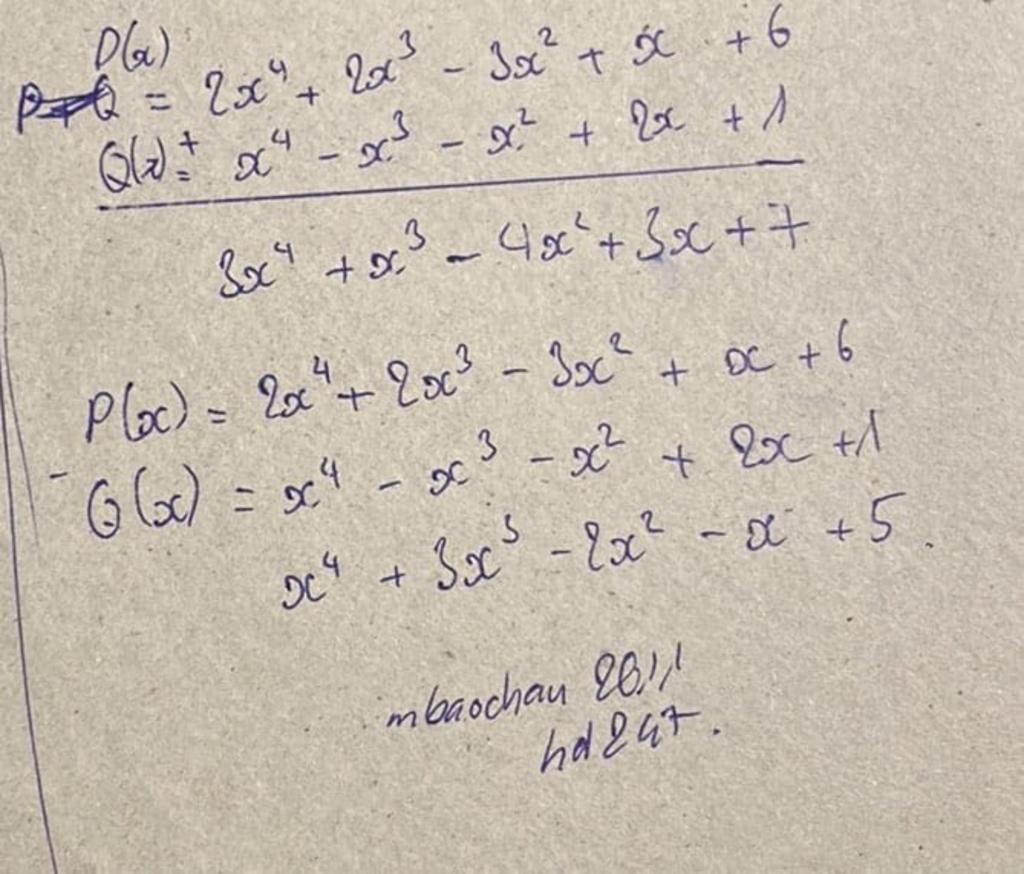 P(x)
= 2x⁴ + 2x³ - 3x² + x + 6
Q(x) = + x⁴ - x³ - x² + 2x + 1
3x⁴ + x³ - 4x² + 3x + 7
P(x) = 2x⁴ + 2x³ - 3x² + x + 6
-
Q(x) = x⁴ - x³ - x² + 2x + 1
x⁴ + 3x³ - 2x² - x + 5.
mbaochau 2611
hd247.